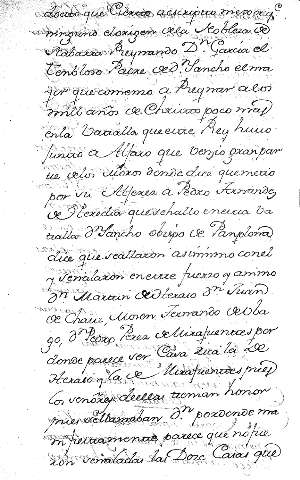 que Garcia escriptu memor
ninguno el origen de la Nobleza de
Nabarra Reynando Dn Garcia el
Tembloso Padre de Dn Sancho el ma
yor que comenso a Reynar a los
mill años de Christo poco mas
en la Vatalla que este Rey huvo
junto a Alfaro que vensio gran par
te de los Moros donde dice que metio
por su Alferes a Pedro Fernandez
de Heredia que se hallo en esta va
talla Dn Sancho obispo de Panplona
dice que se allaron asimismo con el
y señalaron en este fuerzo y animo
Dn Martin de Heraso Dn Juan
de Mosen Fernando de Oba
go, Dn Pedro Perez de Mirafuentes por
donde parece ser Casa la de
Heraso y la de Mirafuentes pues
los señores dellas tomian honor
pues se llamaban Dn por donde ma
nifiestamente parece que no fue
ron señaladas las Doze Casas que